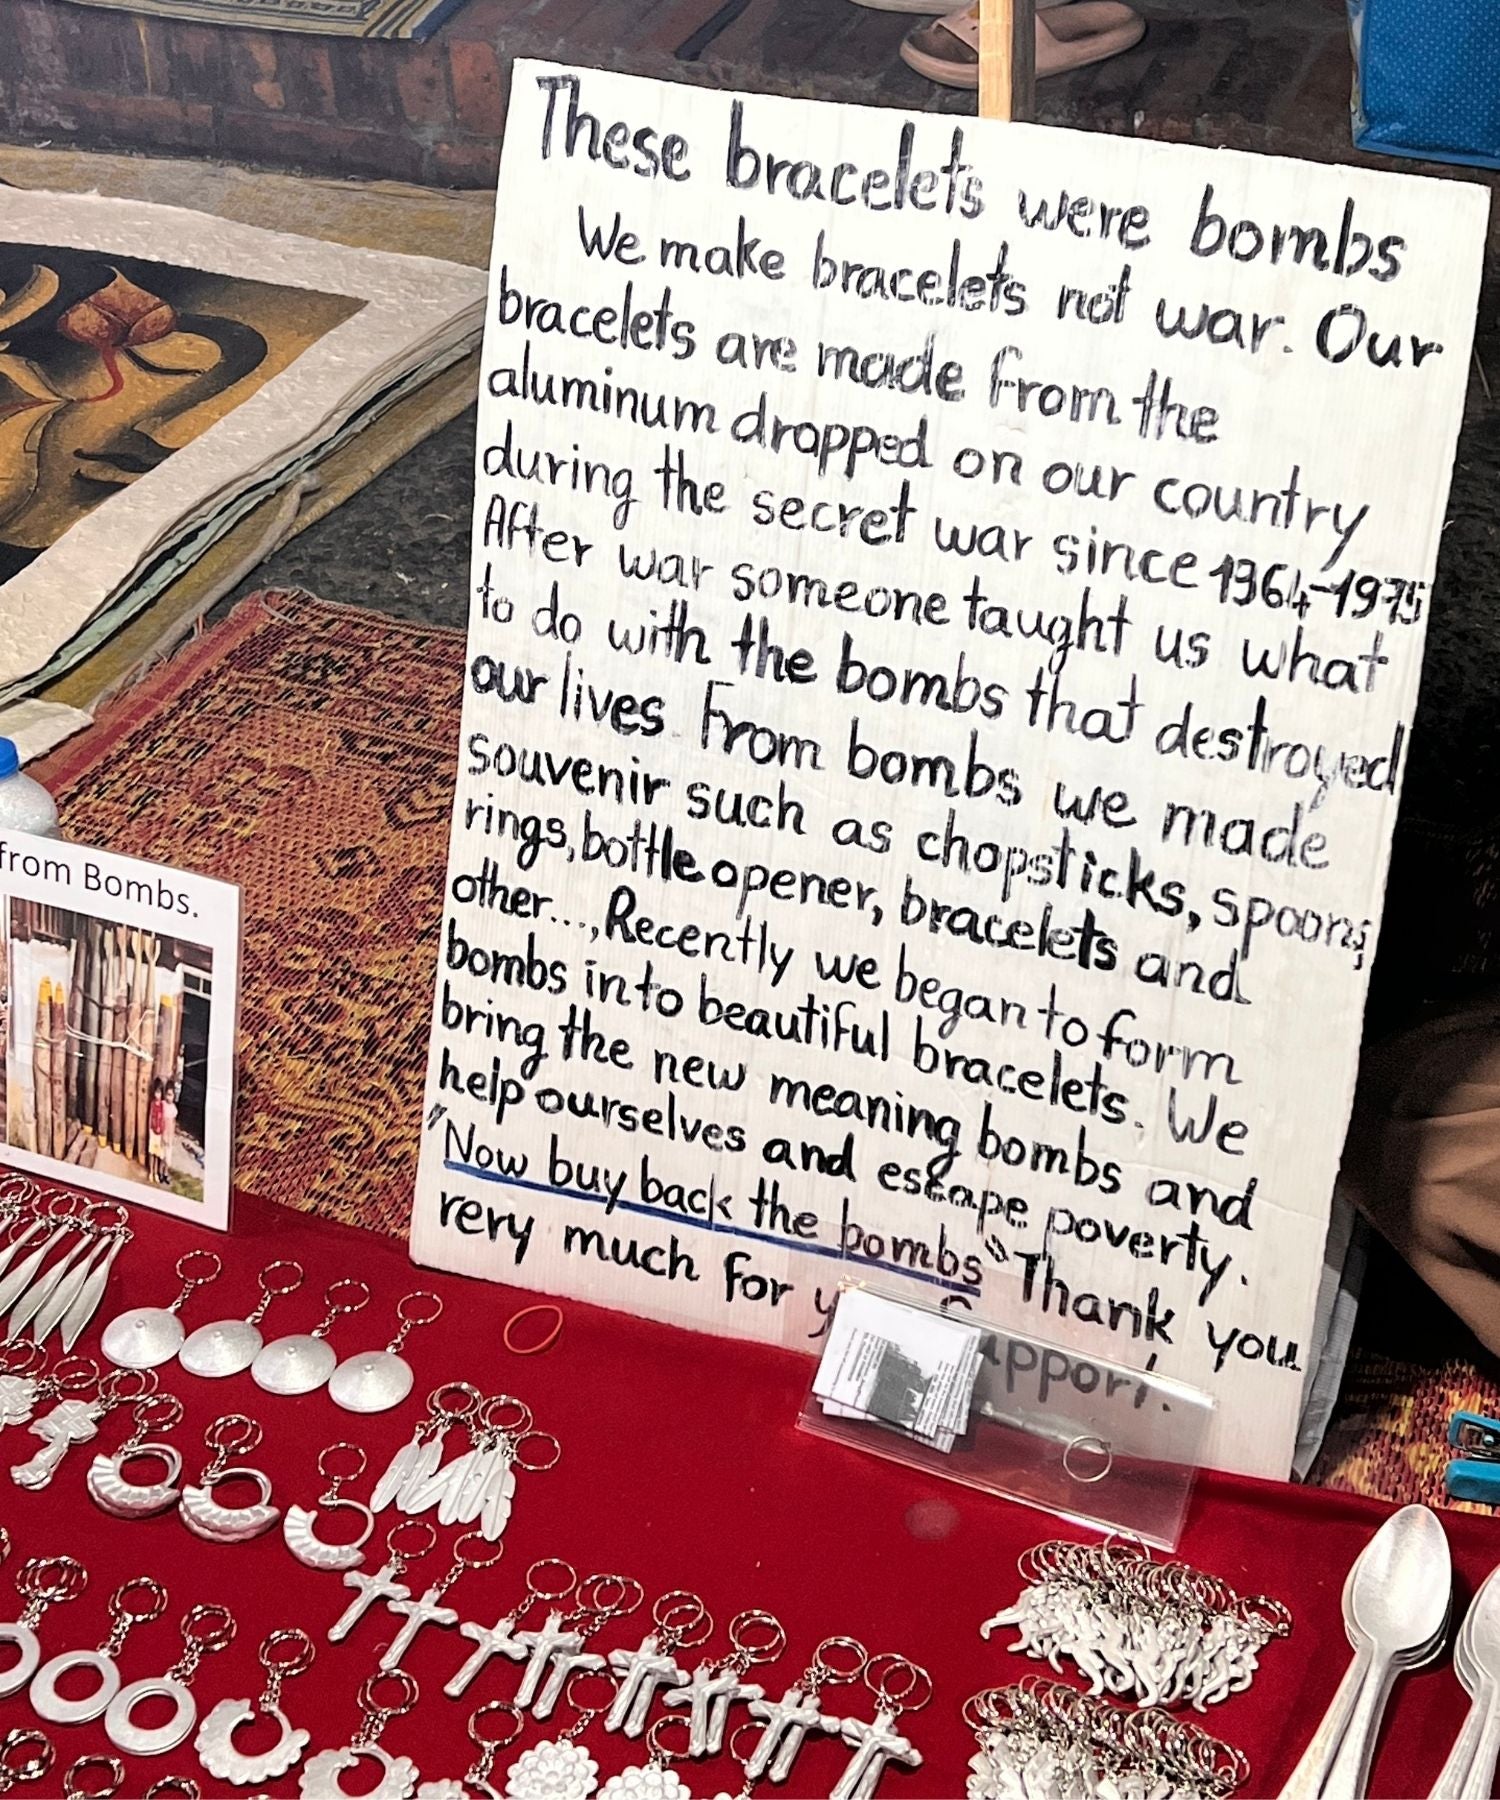 These bracelets were bombs
We make bracelets not war. Our
bracelets are made from the
aluminum dropped on our country
during the secret war since 1964-1975
After war someone taught us what
to do with the bombs that destroyed
our lives. From bombs we made
souvenir such as chopsticks, spoons,
rings, bottle opener, bracelets and
other..., Recently we began to form
bombs into beautiful bracelets. We
bring the new meaning bombs and
help ourselves and escape poverty.
"Now buy back the bombs" Thank you
rery much for
support.
from Bombs.